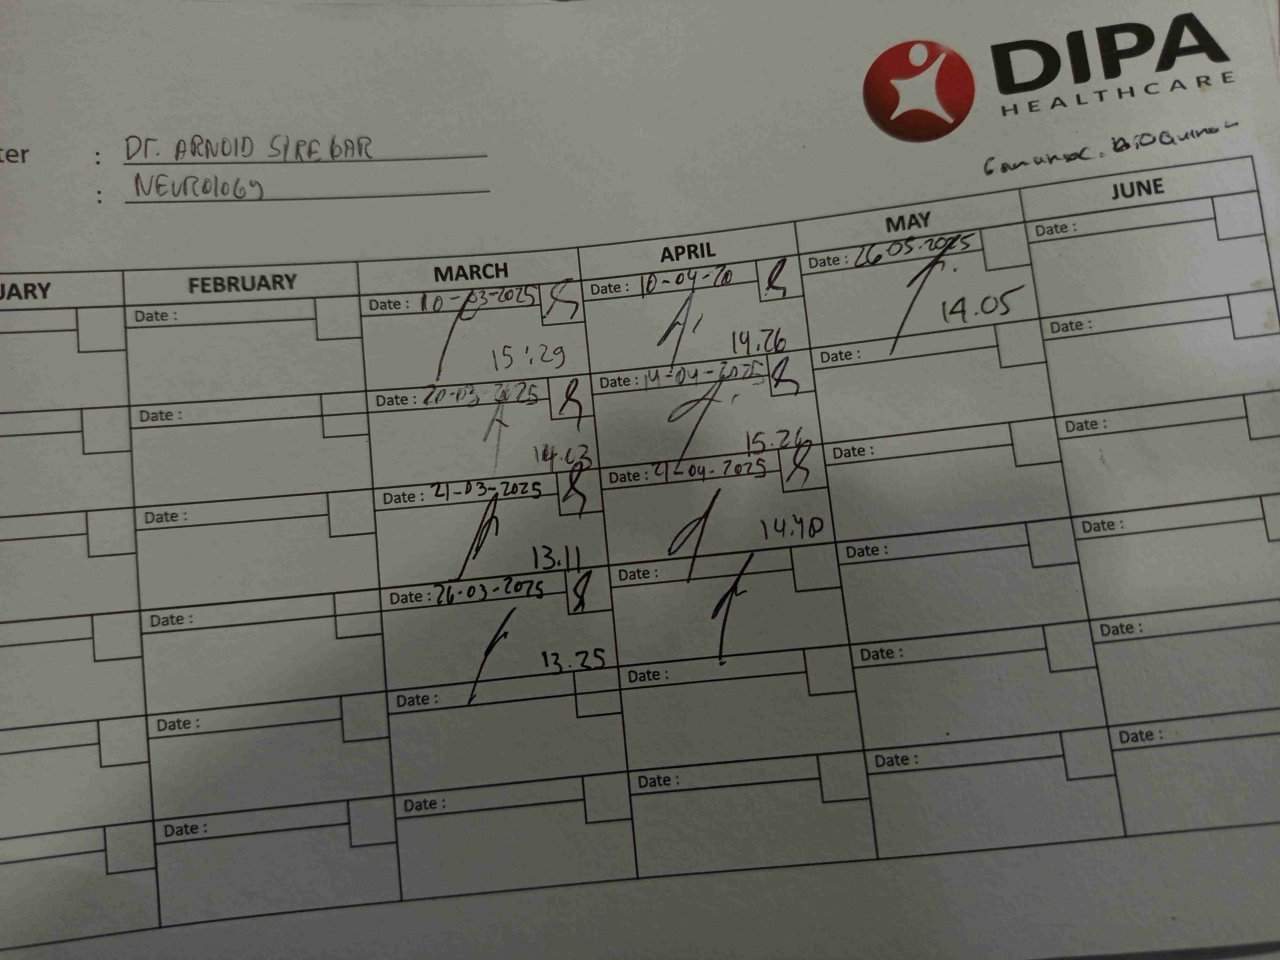 DIPA
HEALTHCARE
ter : Dr. ARNOLD SIREGAR
: NEUROLOGY
UARY FEBRUARY MARCH APRIL MAY JUNE
Date : Date : 10-03-2025 Date : 10-04-20 Date : 26.05.2025 Date :
15:29 14.26 14.05
Date : Date : 20-03-2025 Date : 14-04-2025 Date : Date :
14.03 15.26
Date : Date : 21-03-2025 Date : 21-04-2025 Date : Date :
13.11 14.40
Date : Date : 26-03-2025 Date : Date : Date :
13.25
Date : Date : Date : Date : Date :
Date : Date : Date : Date : Date :